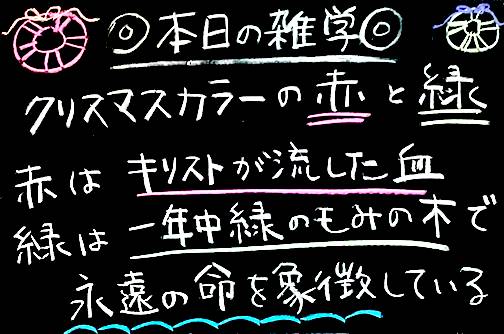 ◎本日の雑学◎
クリスマスカラーの赤と緑
赤はキリストが流した血
緑は一年中緑のもみの木で
永遠の命を象徴している